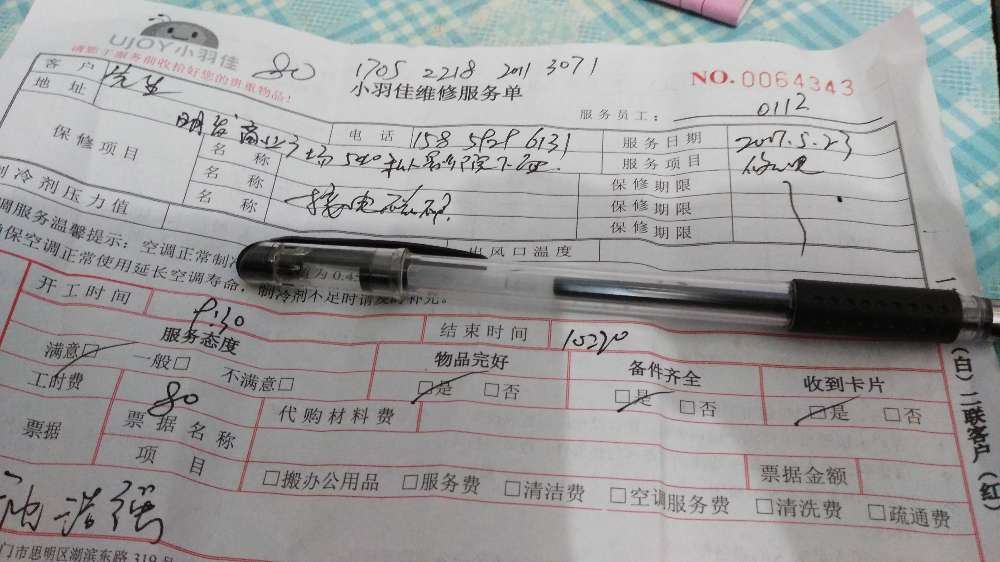 UJOY小羽佳
请您于服务前收拾好您的贵重物品!
80 1705 2218 2011 3071
小羽佳维修服务单
NO.0064343
服务员工: 0112
客户 先生 电话 158 5929 6131 服务日期 2017.5.23
地址 明发商业广场
保修项目 名称 服务项目
名称 保修期限
名称 接电磁 保修期限
保修期限
制冷剂压力值 出风口温度
调服务温馨提示: 空调正常制冷 值为0.4
确保空调正常使用延长空调寿命, 制冷剂不足时请及时补充。
开工时间 9:30 结束时间 10:30
服务态度 物品完好 备件齐全 收到卡片
满意□ 一般□ 不满意□ □是 □否 □是 □否 □是 □否
工时费 80 代购材料费
票据 票据名称
项目 □搬办公用品 □服务费 □清洁费 □空调服务费 □清洗费 □疏通费
票据金额
门市思明区湖滨东路319号
(白) 二联客户 (红)